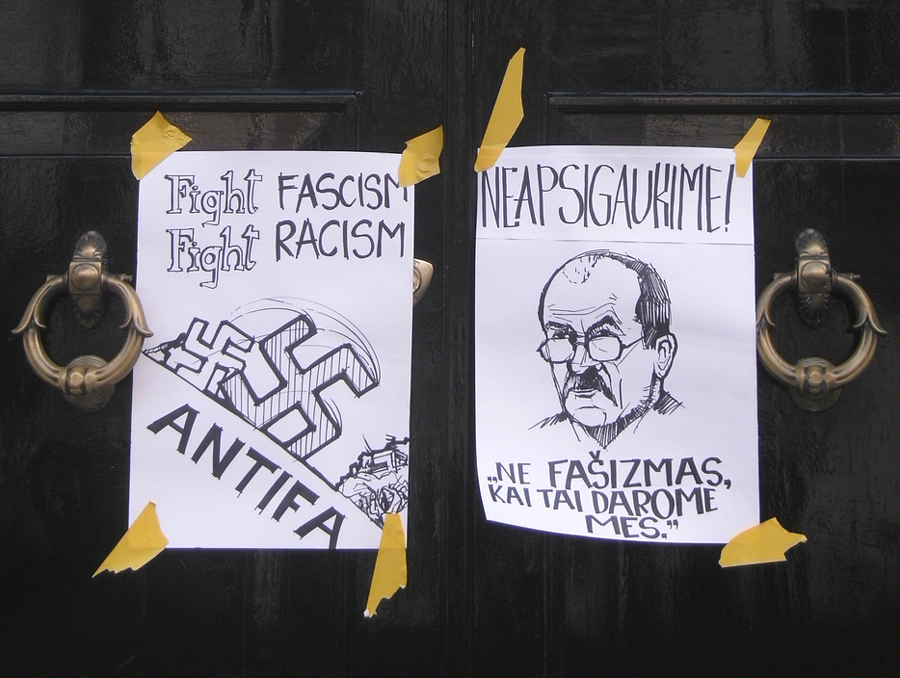 Fight FASCISM
Fight RACISM
ANTIFA
NEAPSIGAUKIME!
„NE FAŠIZMAS,
KAI TAI DAROME
MES.”